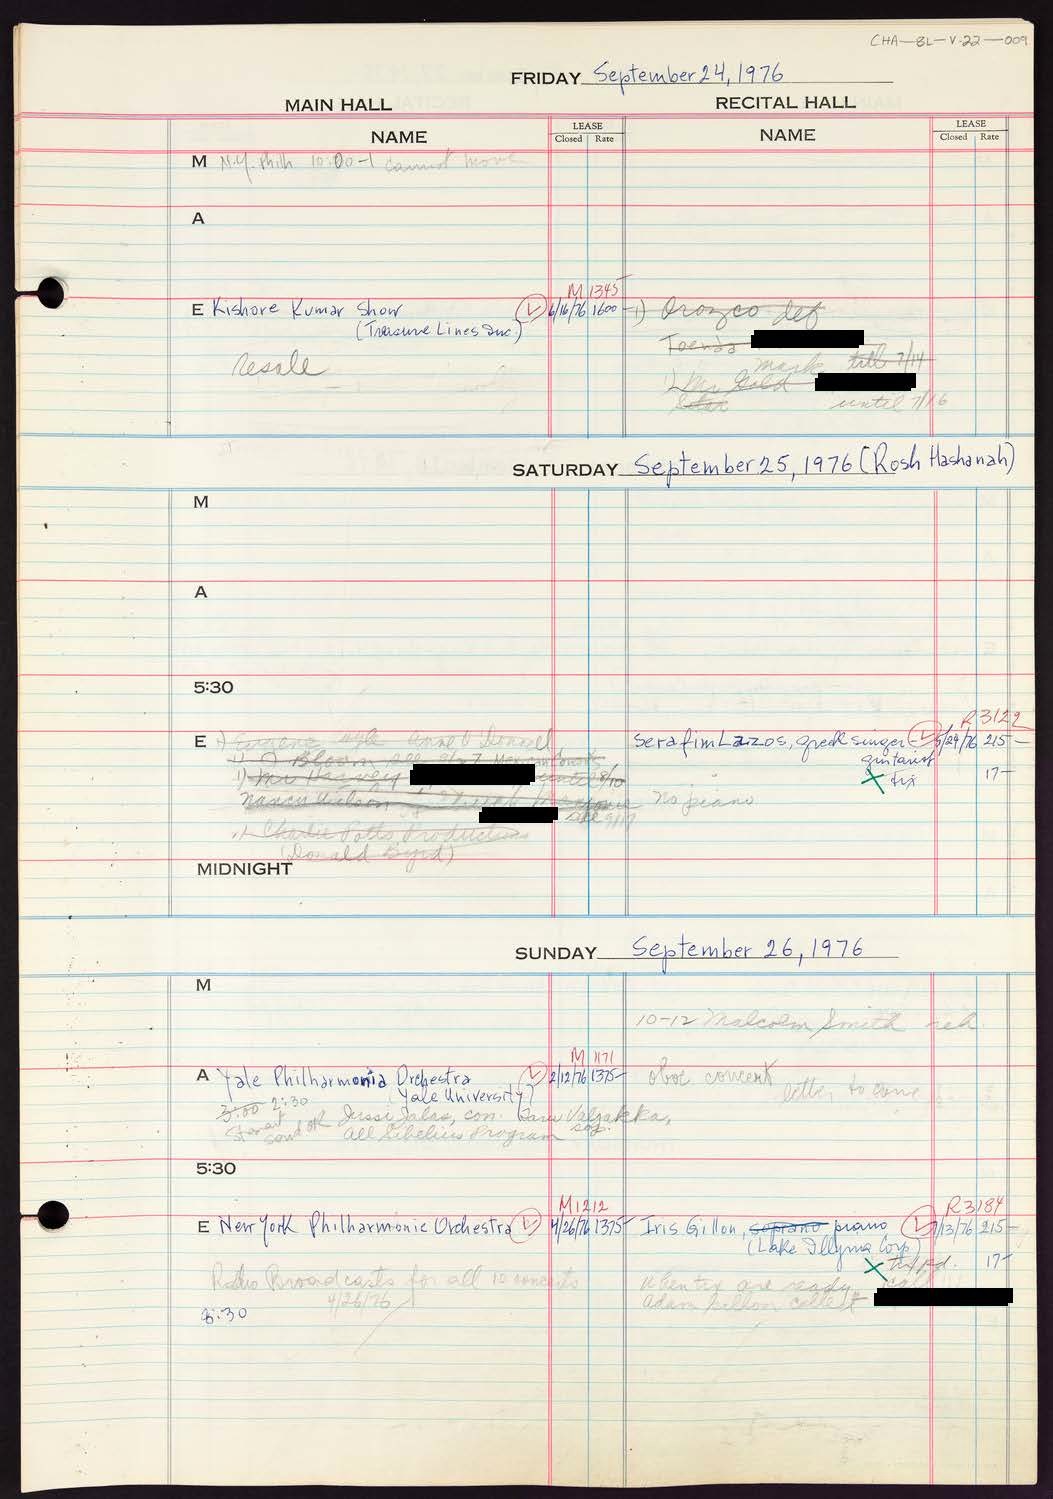 CHA-BL-V.22-009
FRIDAY September 24, 1976
MAIN HALL RECITAL HALL
NAME LEASE Closed Rate NAME LEASE Closed Rate
M N.Y. Phil 10:00-1 cannot move
A
M 1345
E Kishore Kumar Show 6/16/76 1600- 1) Orozco def
(Treasure Lines Inc.)
till 7/14
resale Mark
1) Mr Gold
until 7/16
SATURDAY September 25, 1976 (Rosh Hashanah)
M
A
5:30
R3122
E 1) Eugene Anne O'Donnell Serafim Lazos, greek singer 5/24/76 215-
guitarist
1) Bloom
1) Mr Harvey until 8/10 X tix 17-
Nancy Wilson no piano
1) Charlie Potts Productions
(Donald Byrd)
MIDNIGHT
SUNDAY September 26, 1976
M
10-12 Malcolm Smith reh
M 1171
A Yale Philharmonia Orchestra 2/12/76 1375- oboe concert
(Yale University) letter to come
3:00 2:30
Jussi Jalas, con. Taru Valjakka,
sop.
All Sibelius Program
5:30
M1212 R3184
E New York Philharmonic Orchestra 4/26/76 1375- Iris Gillon, soprano piano 7/13/76 215-
(Lake Illyria Corp)
X tix pd. 17-
Radio Broadcasts for all 10 concerts when tix are ready call
4/26/76 Adam Gillon collect
8:30